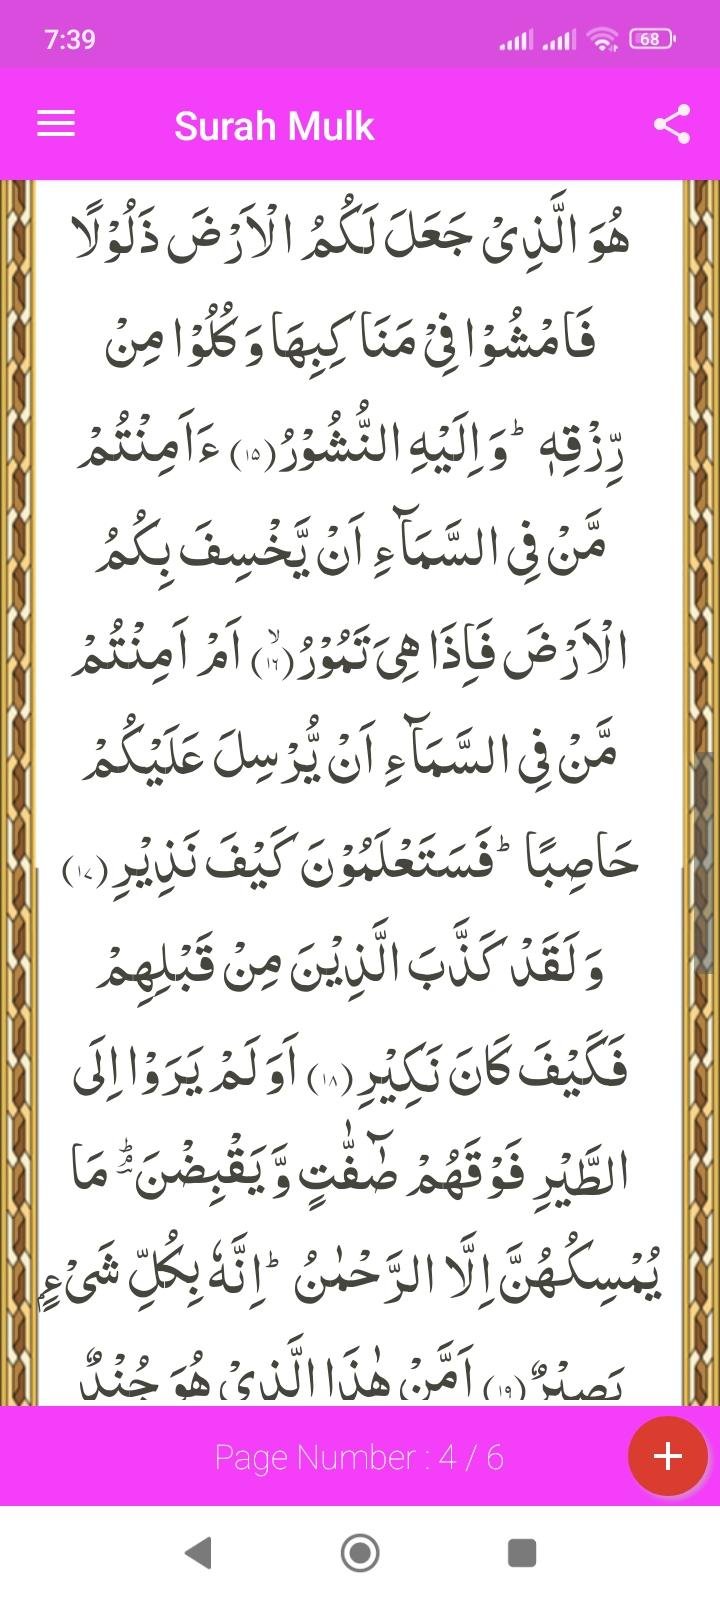 7:39
68
Surah Mulk
هُوَ الَّذِیْ جَعَلَ لَكُمُ الْاَرْضَ ذَلُوْلًا
فَامْشُوْا فِیْ مَنَاكِبِهَا وَ كُلُوْا مِنْ
رِّزْقِهٖؕ وَ اِلَیْهِ النُّشُوْرُ(۱۵) ءَاَمِنْتُمْ
مَّنْ فِی السَّمَآءِ اَنْ یَّخْسِفَ بِكُمُ
الْاَرْضَ فَاِذَا هِیَ تَمُوْرُ(۱۶)ۙ اَمْ اَمِنْتُمْ
مَّنْ فِی السَّمَآءِ اَنْ یُّرْسِلَ عَلَیْكُمْ
حَاصِبًاؕ فَسَتَعْلَمُوْنَ كَیْفَ نَذِیْرِ(۱۷)
وَ لَقَدْ كَذَّبَ الَّذِیْنَ مِنْ قَبْلِهِمْ
فَكَیْفَ كَانَ نَكِیْرِ(۱۸) اَوَ لَمْ یَرَوْا اِلَی
الطَّیْرِ فَوْقَهُمْ صٰٓفّٰتٍ وَّ یَقْبِضْنَ ﲪ مَا
یُمْسِكُهُنَّ اِلَّا الرَّحْمٰنُؕ اِنَّهٗ بِكُلِّ شَیْءٍۭ
بَصِیْرٌ(۱۹) اَمَّنْ هٰذَا الَّذِیْ هُوَ جُنْدٌ
Page Number : 4 / 6